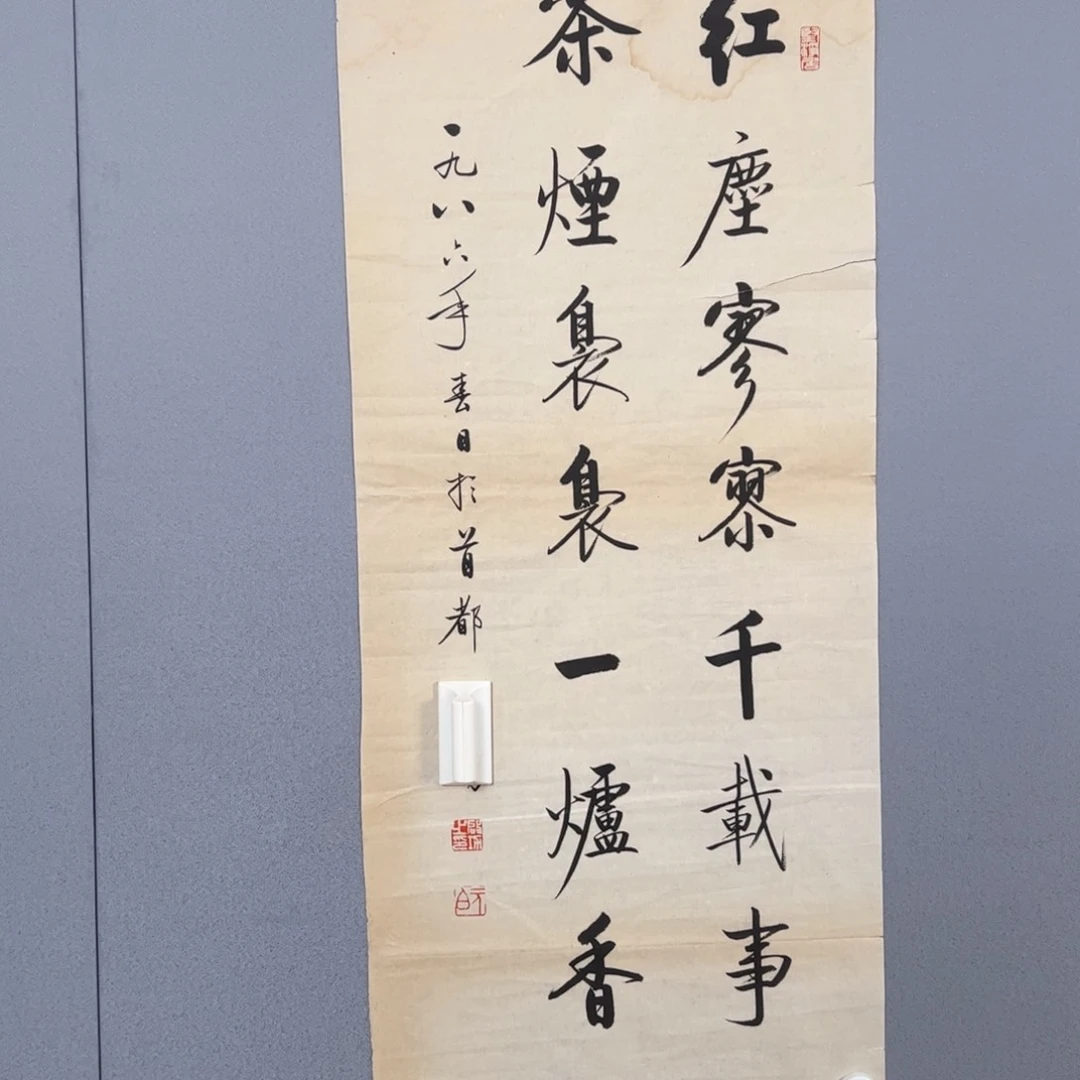 红塵寥寥千載事
茶煙裊裊一爐香
一九八六年春日於首都